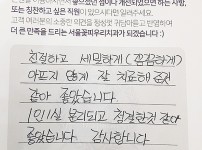 좋았던 점이나 개선되었으면 하는 사항,
또는 칭찬하고 싶은 직원이 있으시다면 알려주세요.
고객 여러분의 소중한 의견을 정성껏 귀담아듣고 반영하여
더 큰 만족을 드리는 서울꽃피우리치과가 되겠습니다 :)
친절하고 세밀하게 (꼼꼼하게)
아프지 않게 잘 치료해 주신
같아 좋았습니다.
1인 1실 분리되고 청결한것 같아
좋았습니다. 감사합니다